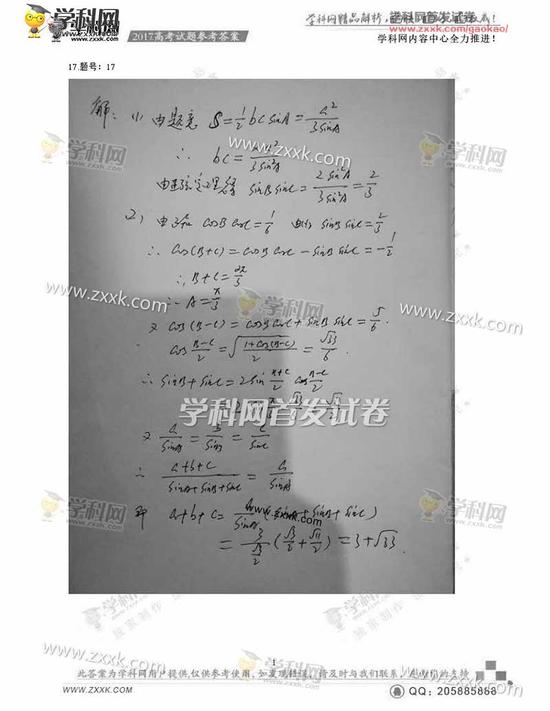 学科网
www.zxxk.com
2017高考试题参考答案
学科网首发试卷
www.zxxk.com/gaokao/
学科网内容中心全力推进!
17.题号: 17
解: (1) 由题意 S=½bc sinA=a²/(3sinA)
∴ bc=2a²/(3sin²A)
由正弦定理得 sinB sinC=2sin²A/(3sin²A)=2/3
2) cosB cosC=1/6 sinB sinC=2/3
∴ cos(B+C)=cosB cosC-sinB sinC=-1/2
∴ B+C=2π/3
∴ A=π/3
又 cos(B-C)=cosB cosC+sinB sinC=5/6.
cos (B-C)/2=√((1+cos(B-C))/2)=√33/6.
∴ sinB+sinC=2sin (B+C)/2 cos (B-C)/2
学科网首发试卷
又 a/sinA=b/sinB=c/sinC
∴ (a+b+c)/(sinA+sinB+sinC)=a/sinA
即 a+b+c=a/sinA(sinA+sinB+sinC)
=3/(√3/2)(√3/2+√11/2)=3+√33.
1
此答案为学科网用户提供,仅供参考使用,如发现错误,请及时与我们联系,是我们的支持
www.zxxk.com
QQ: 205885888